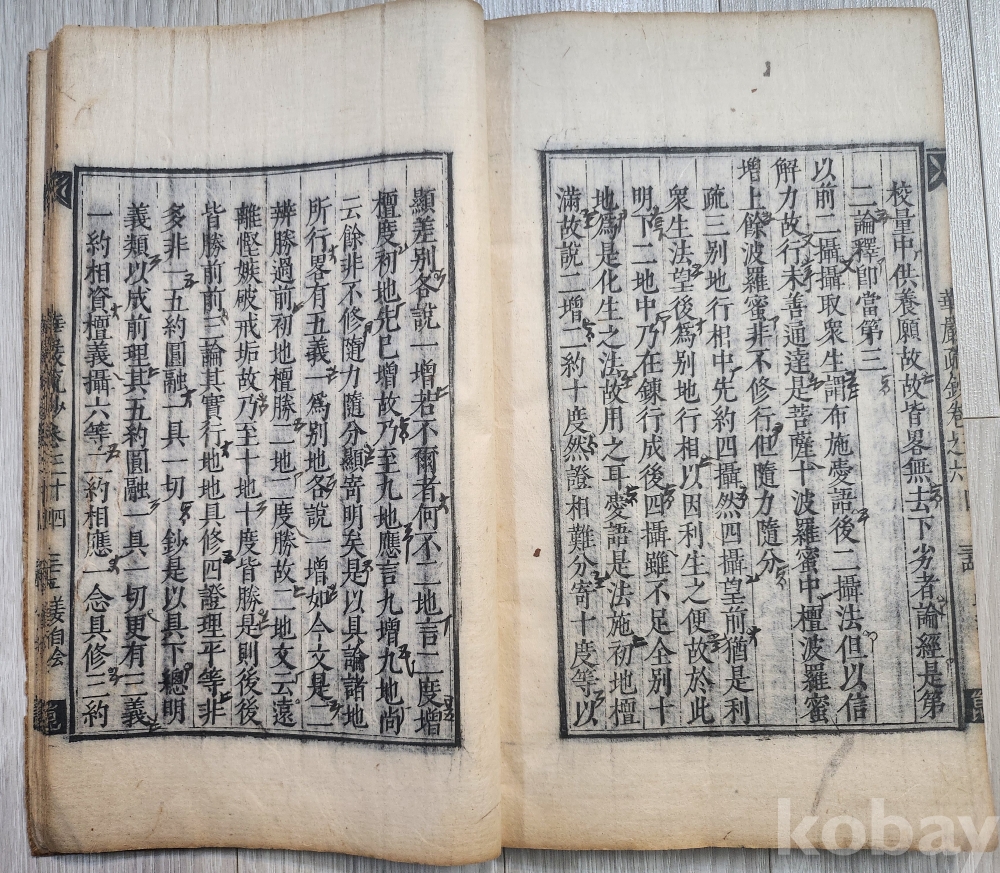 華嚴疏鈔卷之六
校量中供養願故故皆畧無去下劣者論經是第
二論釋卽當第三
以前二攝攝取衆生謂布施愛語後二攝法但以信
解力故行未善通達是菩薩十波羅蜜中檀波羅蜜
增上餘波羅蜜非不修行但隨力隨分
疏三別地行相中先約四攝然四攝望前猶是利
衆生法望後爲別地行相以因利生之便故於此
明下二地中乃在鍊行成後四攝雖不足全別十
地爲是化生之法故用之耳愛語是法施初地檀
滿故說二增二約十度然證相難分寄十度等以
顯差別各說一增若不爾者何不二地言二度增
檀度初地先已增故乃至九地應言九增九地尚
云餘非不修隨力隨分顯寄明矣是以具論諸地
所行畧有五義一爲別地各說一增如今文是二
辨勝過前初地檀勝二地二度勝故二地文云遠
離慳嫉破戒垢故乃至十地十度皆勝是則後後
皆勝前前三論其實行地地具修四證理平等非
多非一五約圓融一具一切鈔是以具下總明
義類以成前理其五約圓融一具一切更有三義
一約相資檀義攝六等二約相應一念具修三約
華嚴疏鈔卷三十四 姜自会
kobay